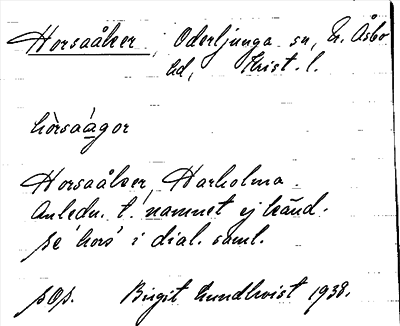 Horsaåker, Oderljunga sn, N. Åsbo
hd, Krist. l.
hòrsaágor
Horsaåker, Harholma.
Anledn. t. namnet ej känd.
se 'hors' i dial. saml.
sOp. Birgit Lundkvist 1938.